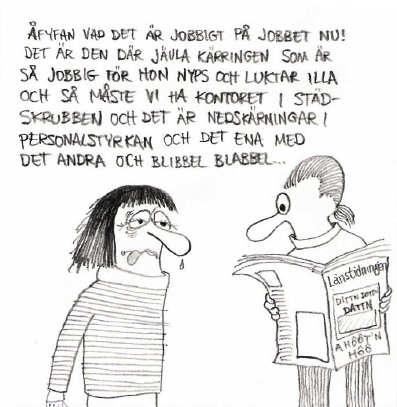 ÅFYFAN VAD DET ÄR JOBBIGT PÅ JOBBET NU!
DET ÄR DEN DÄR JÄVLA KÄRRINGEN SOM ÄR
SÅ JOBBIG FÖR HON NYPS OCH LUKTAR ILLA
OCH SÅ MÅSTE VI HA KONTORET I STÄD-
SKRUBBEN OCH DET ÄR NEDSKÄRNINGAR I
PERSONALSTYRKAN OCH DET ENA MED
DET ANDRA OCH BLIBBEL BLABBEL...
Länstidningen
DITTN DUTTN
DATTN
A HÖÖT'N
HÖÖ